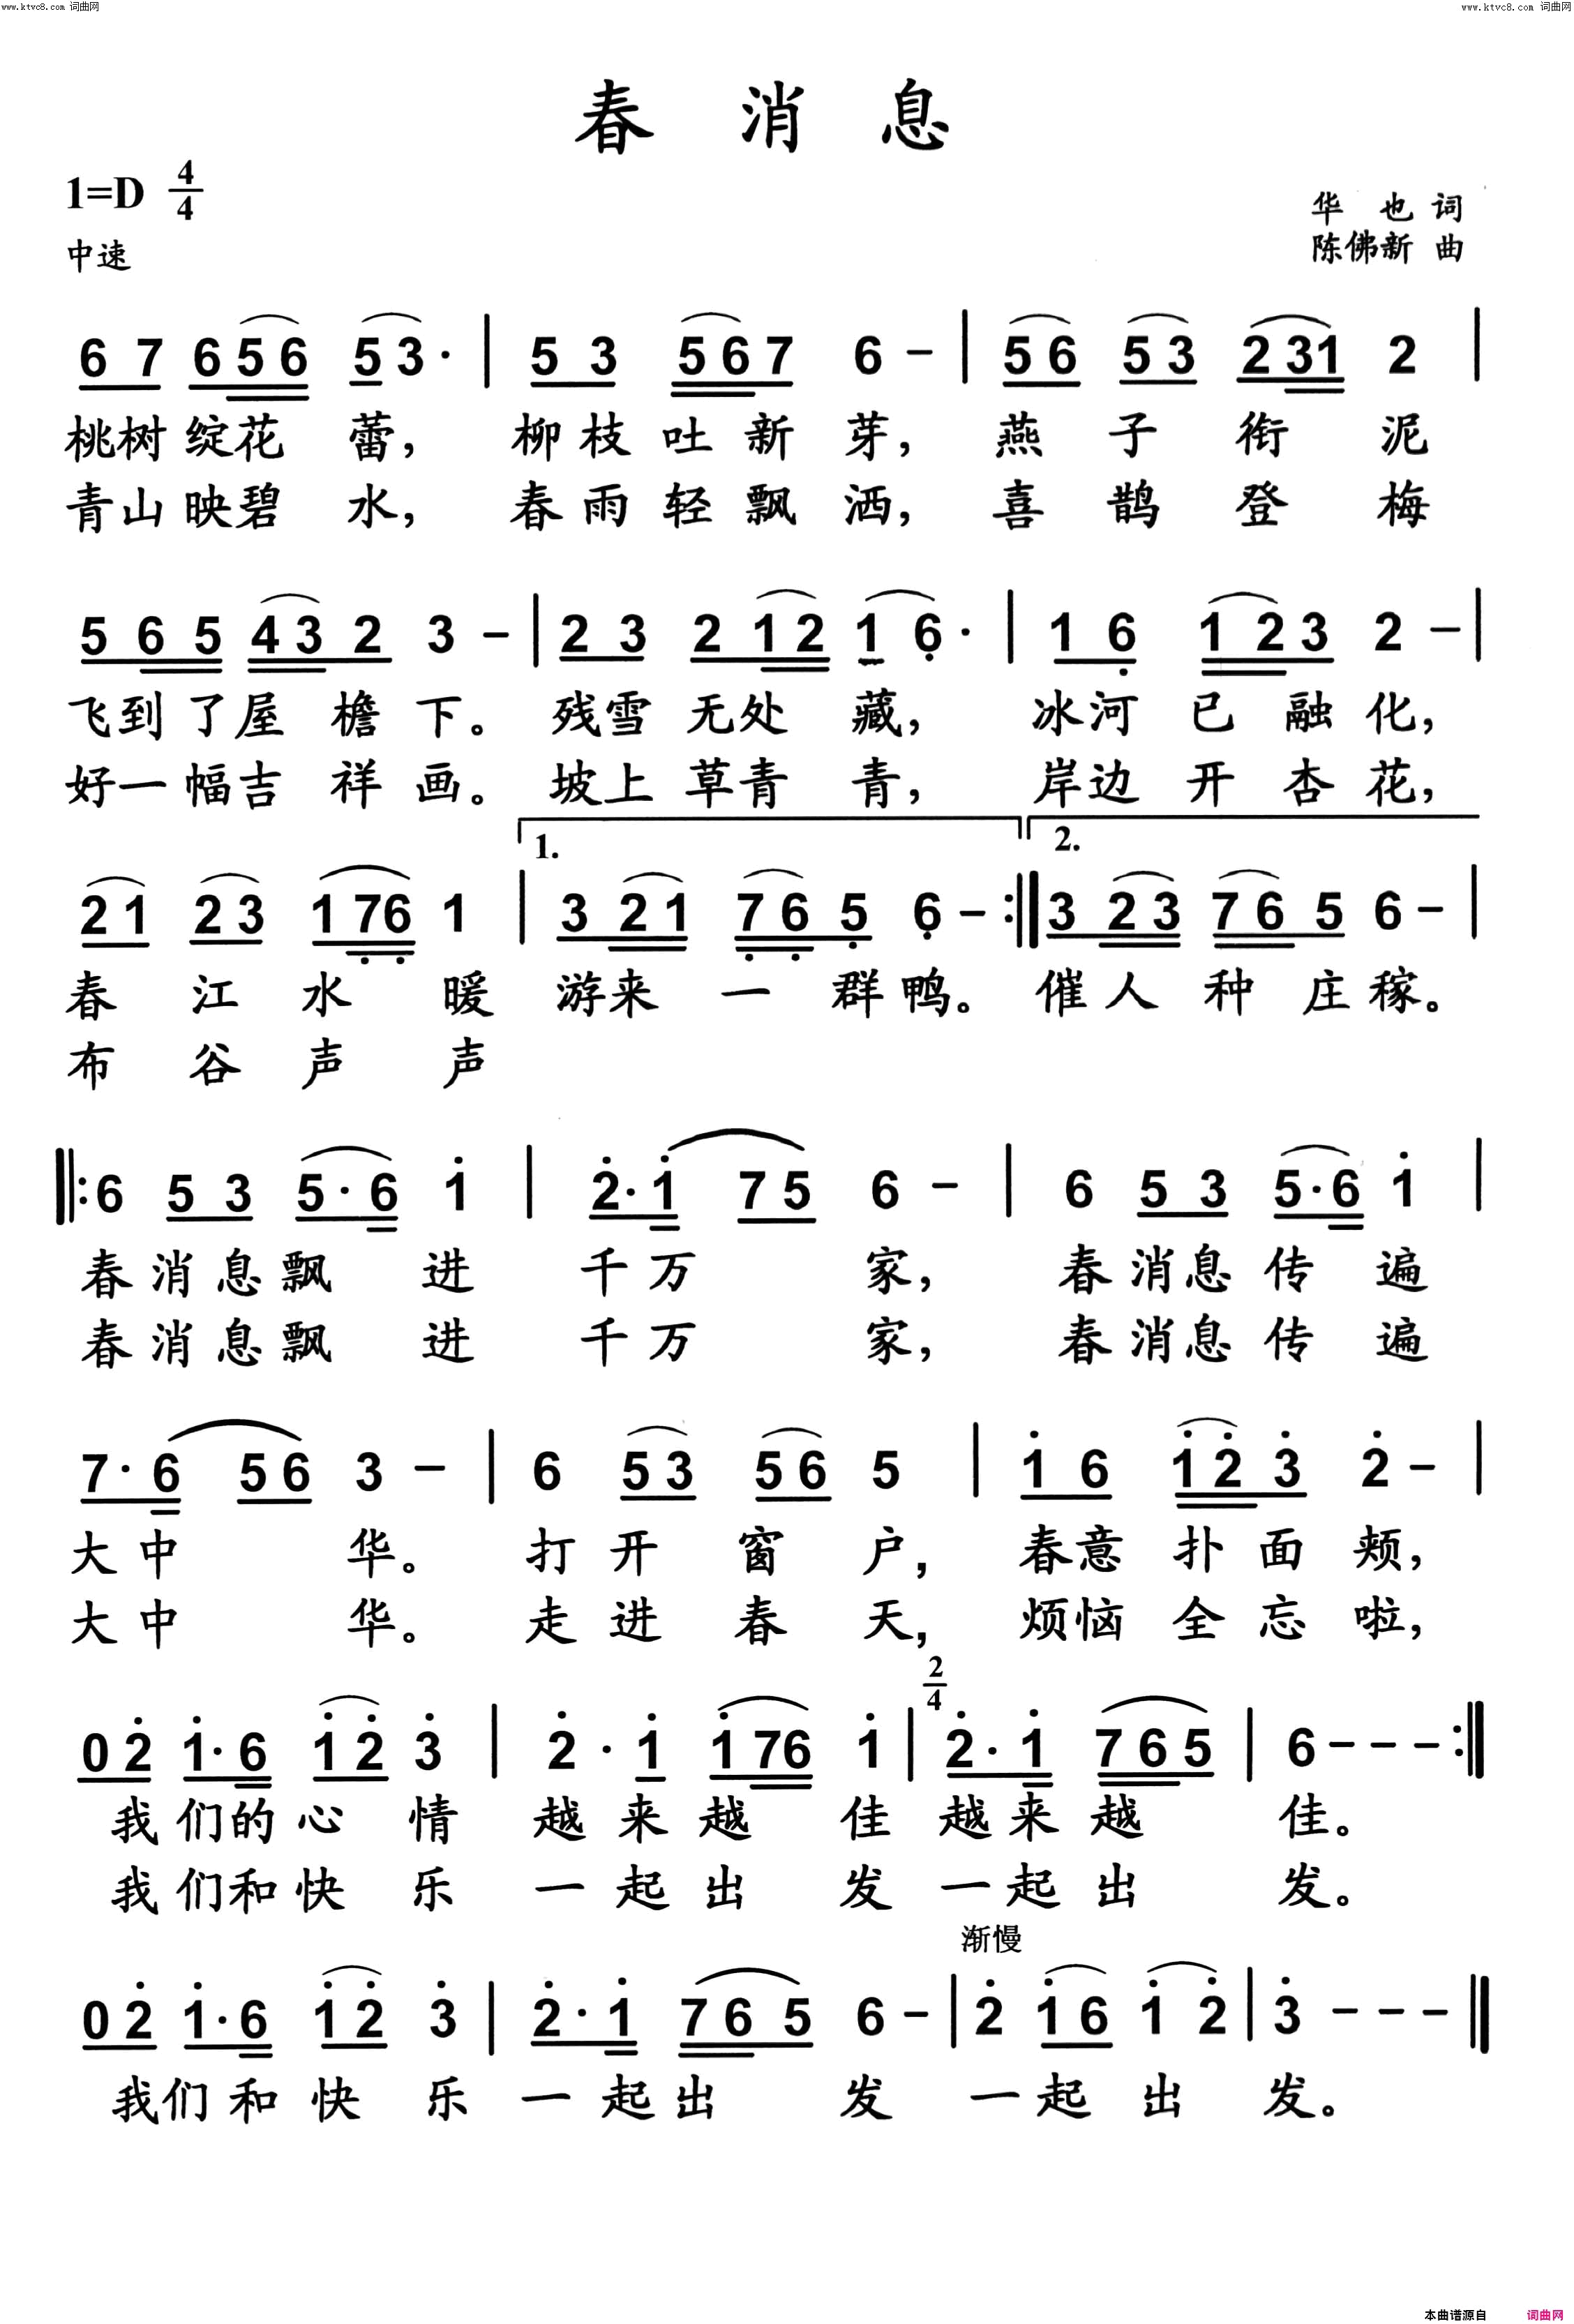 www.ktvc8.com 词曲网 www.ktvc8.com 词曲网
春 消 息
1=D 4/4
华 也 词
中速
陈佛新 曲
6 7 6 5 6 5 3· | 5 3 5 6 7 6 – | 5 6 5 3 2 3 1 2 |
桃树绽花 蕾， 柳枝吐新芽， 燕 子 衔 泥
青山映碧 水， 春雨轻飘洒， 喜 鹊 登 梅
5 6 5 4 3 2 3 – | 2 3 2 1 2 1 6̣· | 1 6̣ 1 2 3 2 – |
飞到了屋 檐 下。 残雪无处 藏， 冰河已融化，
好一幅吉 祥 画。 坡上草青 青， 岸边开杏花，
1. 2.
2 1 2 3 1 7̣ 6̣ 1 | 3 2 1 7̣ 6̣ 5̣ 6̣ – :‖ 3 2 3 7 6 5 6 – |
春 江 水 暖 游来 一 群鸭。 催人种庄稼。
布 谷 声 声
‖: 6 5 3 5·6 1̇ | 2̇·1̇ 7 5 6 – | 6 5 3 5·6 1̇ |
春消息飘 进 千万 家， 春消息传 遍
春消息飘 进 千万 家， 春消息传 遍
7·6 5 6 3 – | 6 5 3 5 6 5 | 1̇ 6 1̇ 2̇ 3̇ 2̇ – |
大中 华。 打开窗户， 春意扑面颊，
大中 华。 走进春天， 烦恼全忘啦，
2/4
0 2̇ 1̇·6 1̇ 2̇ 3̇ | 2̇· 1̇ 1̇ 7 6 1̇ | 2̇·1̇ 7 6 5 | 6 – – – :‖
我们的心 情 越来越 佳 越来越 佳。
我们和快 乐 一起出 发 一起出 发。
渐慢
0 2̇ 1̇·6 1̇ 2̇ 3̇ | 2̇·1̇ 7 6 5 6 – | 2̇ 1̇ 6 1̇ 2̇ | 3̇ – – – ‖
我们和快 乐 一起出 发 一起出 发。
本曲谱源自 词曲网